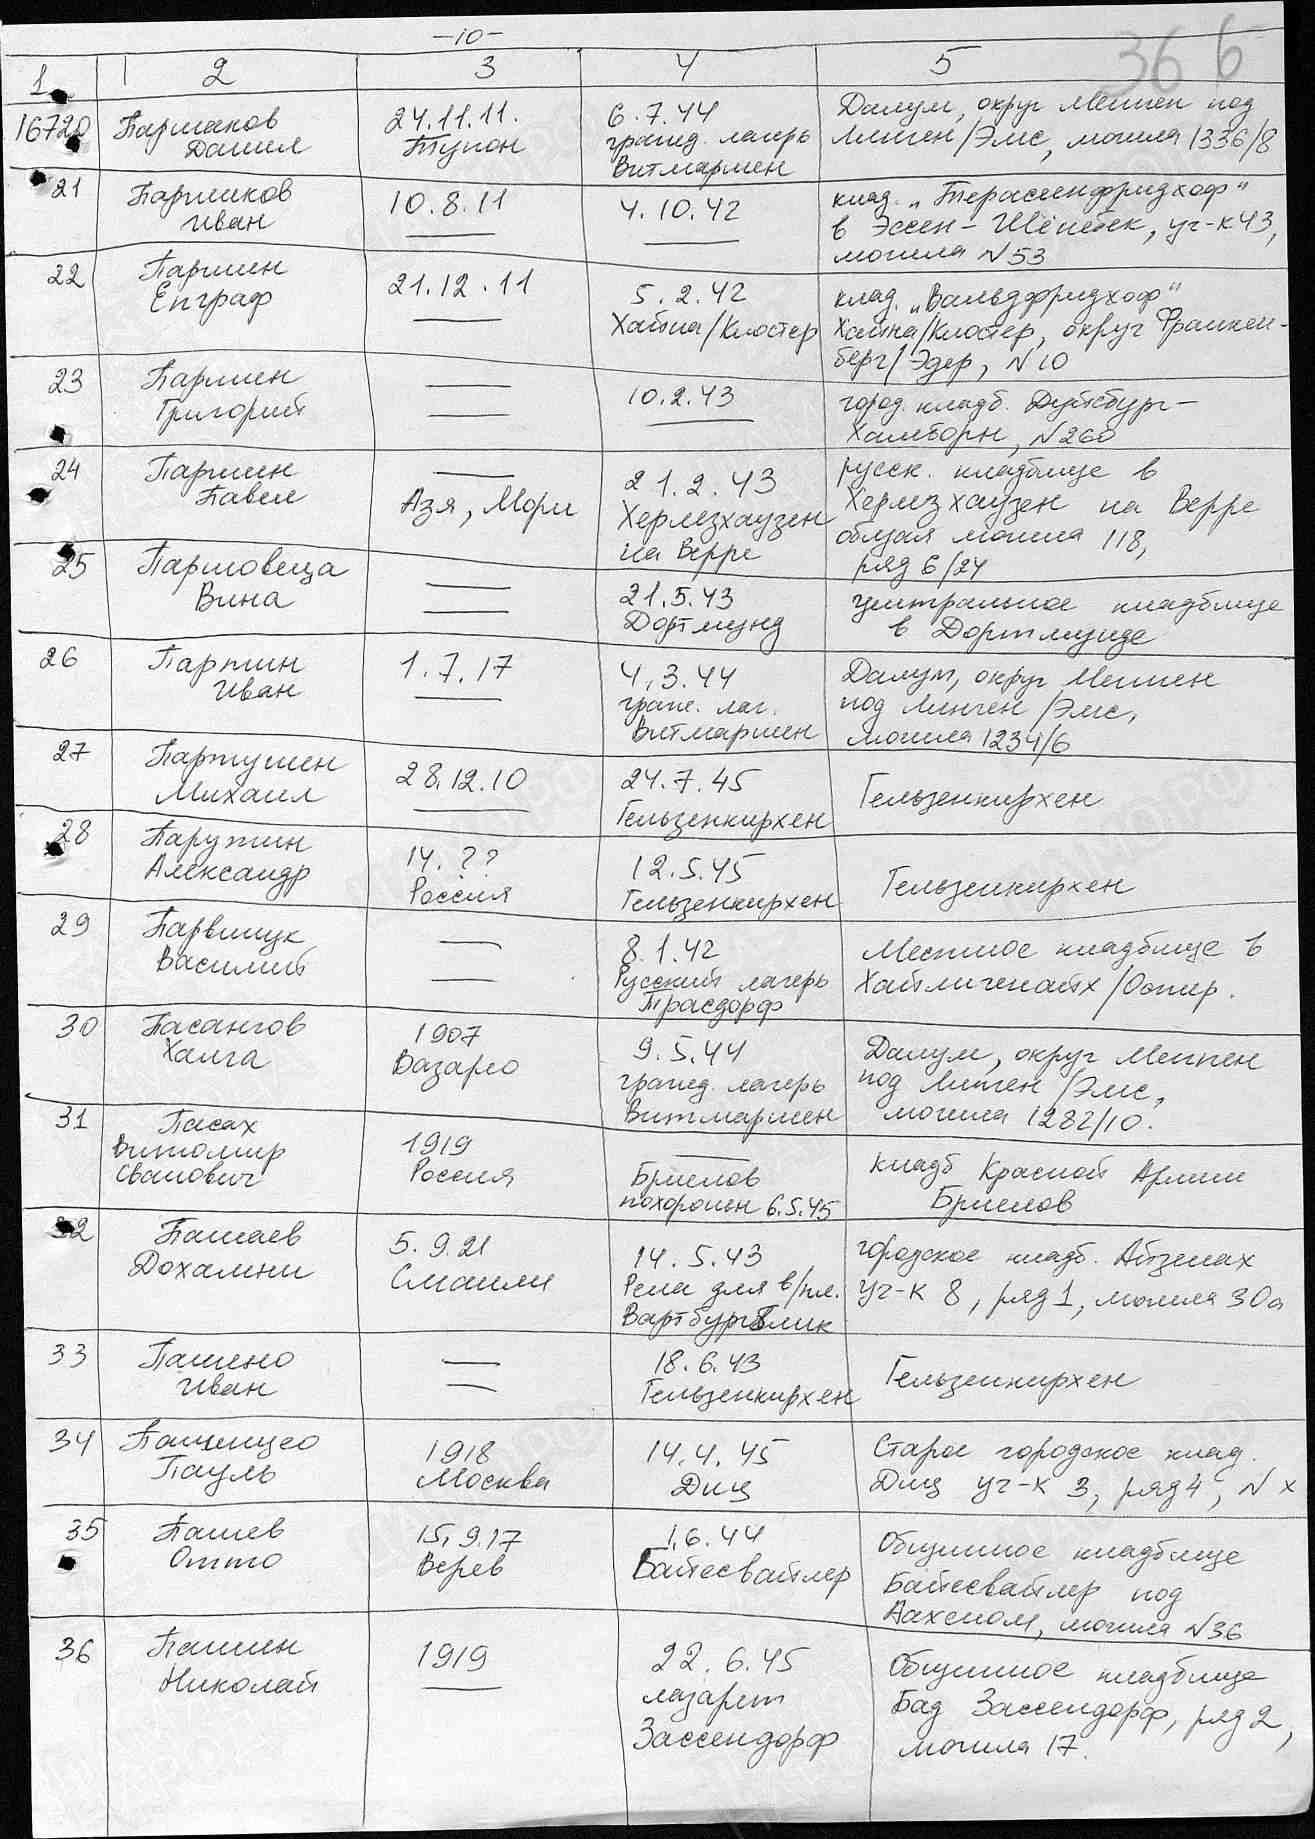 -10-
36 6
1 2 3 4 5
16720 Паршаков
Данил
24.11.11.
Тугон
6.7.44
гражд. лагерь
Витмаршен
Далум, округ Меппен под
Линген/Эмс, могила 1336/8
21 Паршиков
Иван
10.8.11
4.10.42
клад. „Терассенфридхоф"
в Эссен-Шёнебек, уч-к 43,
могила N53
22 Паршин
Епграф
21.12.11
5.2.42
Хайна/Клостер
клад. „Вальдфридхоф"
Хайна/Клостер, округ Франкен-
берг/Эдер, N10
23 Паршен
Григорий
10.2.43
город. кладб. Дуйсбург-
Хамборн, N260
24 Паршин
Павел
Азя, Мори
21.2.43
Херлезхаузен
на Верре
русск. кладбище в
Херлезхаузен на Верре
общая могила 118,
ряд 6/24
25 Паршовеца
Вина
21.5.43
Дортмунд
центральное кладбище
в Дортмунде
26 Партин
Иван
1.7.17
4.3.44
гражд. лаг.
Витмаршен
Далум, округ Меппен
под Линген/Эмс,
могила 1234/6
27 Партушен
Михаил
28.12.10
24.7.45
Гельзенкирхен
Гельзенкирхен
28 Парутин
Александр
14.??
Россия
12.5.45
Гельзенкирхен
Гельзенкирхен
29 Парвищук
Василий
8.1.42
Русский лагерь
Трасдорф
Местное кладбище в
Хайлигенайх/Остир.
30 Пасангов
Халга
1907
Вазарео
9.5.44
гражд. лагерь
Витмаршен
Далум, округ Меппен
под Линген/Эмс,
могила 1282/10.
31 Пасах
Витомир
Сванович
1919
Россия
Брилов
похоронен 6.5.45
кладб Красной Армии
Брилов
32 Пашаев
Дохамни
5.9.21
Смаили
14.5.43
Рела для в/пл.
Вартбургблик
городское кладб. Айзенах
уч-к 8, ряд 1, могила 30а
33 Пашено
Иван
18.6.43
Гельзенкирхен
Гельзенкирхен
34 Пашенцео
Пауль
1918
Москва
14.4.45
Диц
Старое городское клад.
Диц уч-к 3, ряд 4, N x
35 Пашев
Отто
15.9.17
Верев
1.6.44
Байесвайлер
Общинное кладбище
Байесвайлер под
Аахеном, могила N36
36 Пашин
Николай
1919
22.6.45
лазарет
Зассендорф
Общинное кладбище
Бад Зассендорф, ряд 2,
могила 17.